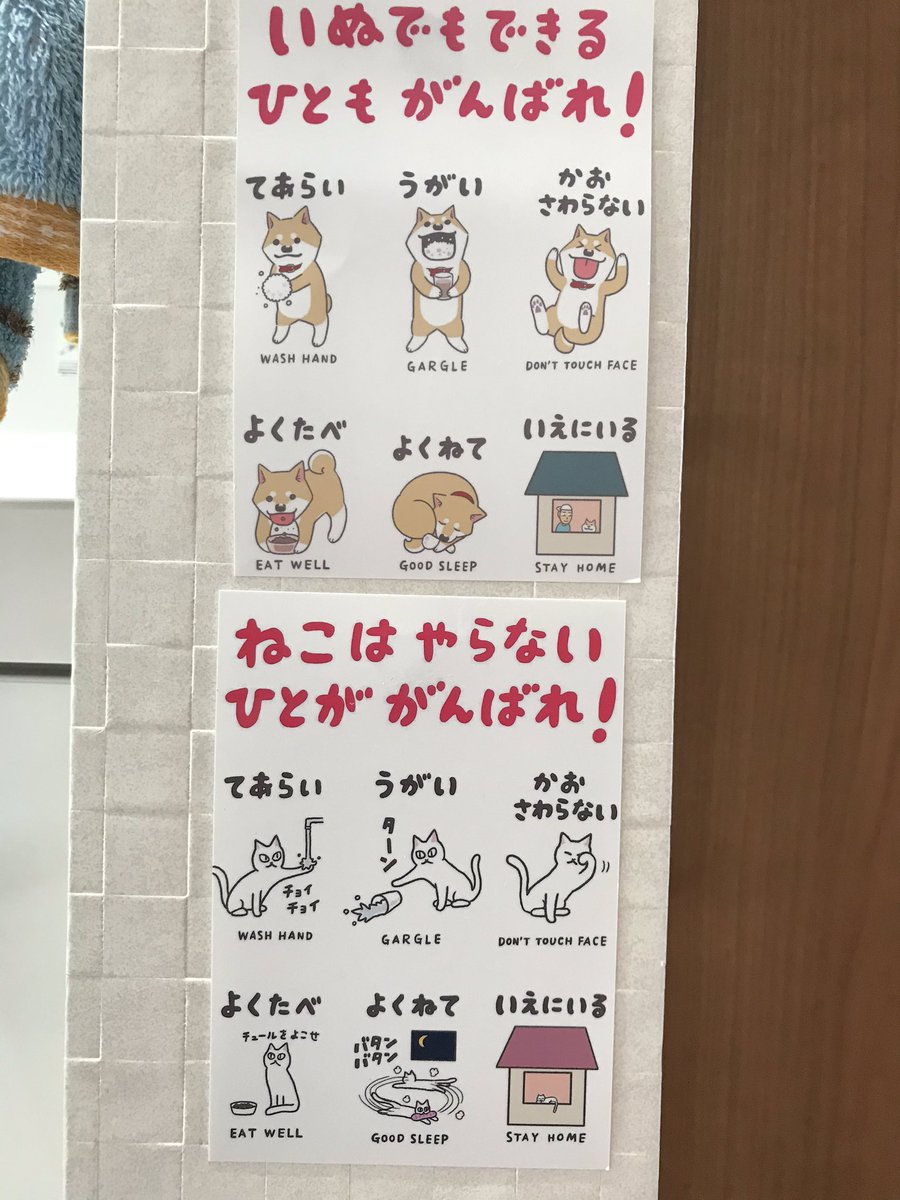 いぬでもできる
ひとも がんばれ!
てあらい
WASH HAND
うがい
GARGLE
かお
さわらない
DON'T TOUCH FACE
よくたべ
EAT WELL
よくねて
GOOD SLEEP
いえにいる
STAY HOME
ねこは やらない
ひとが がんばれ!
てあらい
チョイ
チョイ
WASH HAND
うがい
ターン
GARGLE
かお
さわらない
DON'T TOUCH FACE
よくたべ
チュールをよこせ
EAT WELL
よくねて
バタン
バタン
GOOD SLEEP
いえにいる
STAY HOME